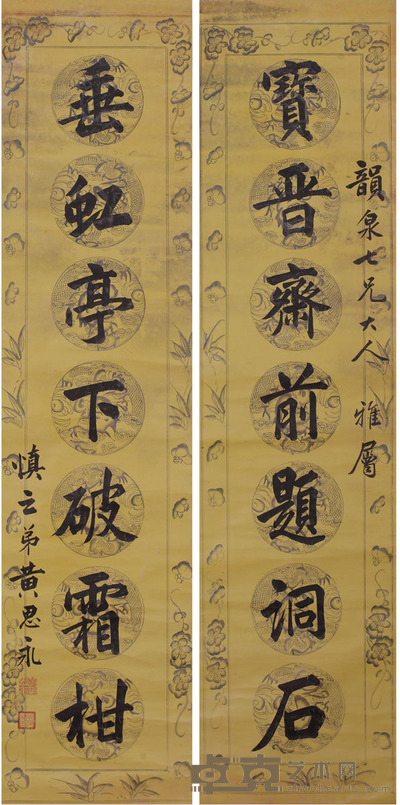 韻泉七兄大人 雅屬
寶晋齋前題詞石
垂虹亭下破霜柑
慎之弟黃思永
卓克艺术网